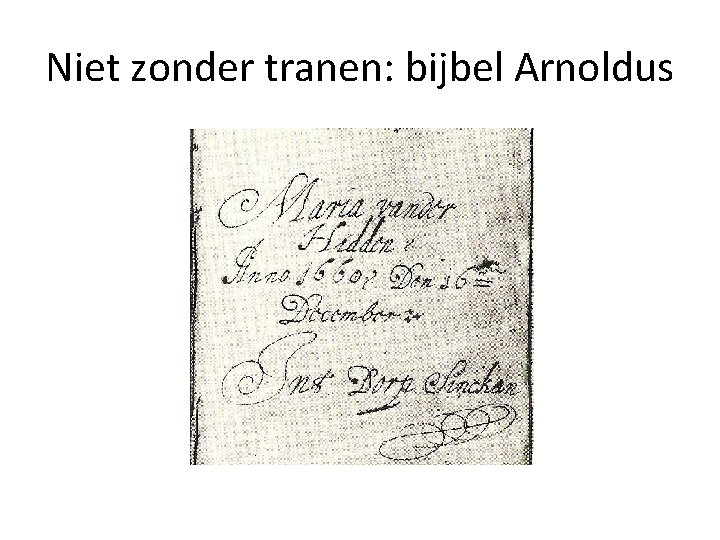 Niet zonder tranen: bijbel Arnoldus
Maria vander
Heÿden
Anno 1660, Den 16en
December
Inst Dorp Sinckan